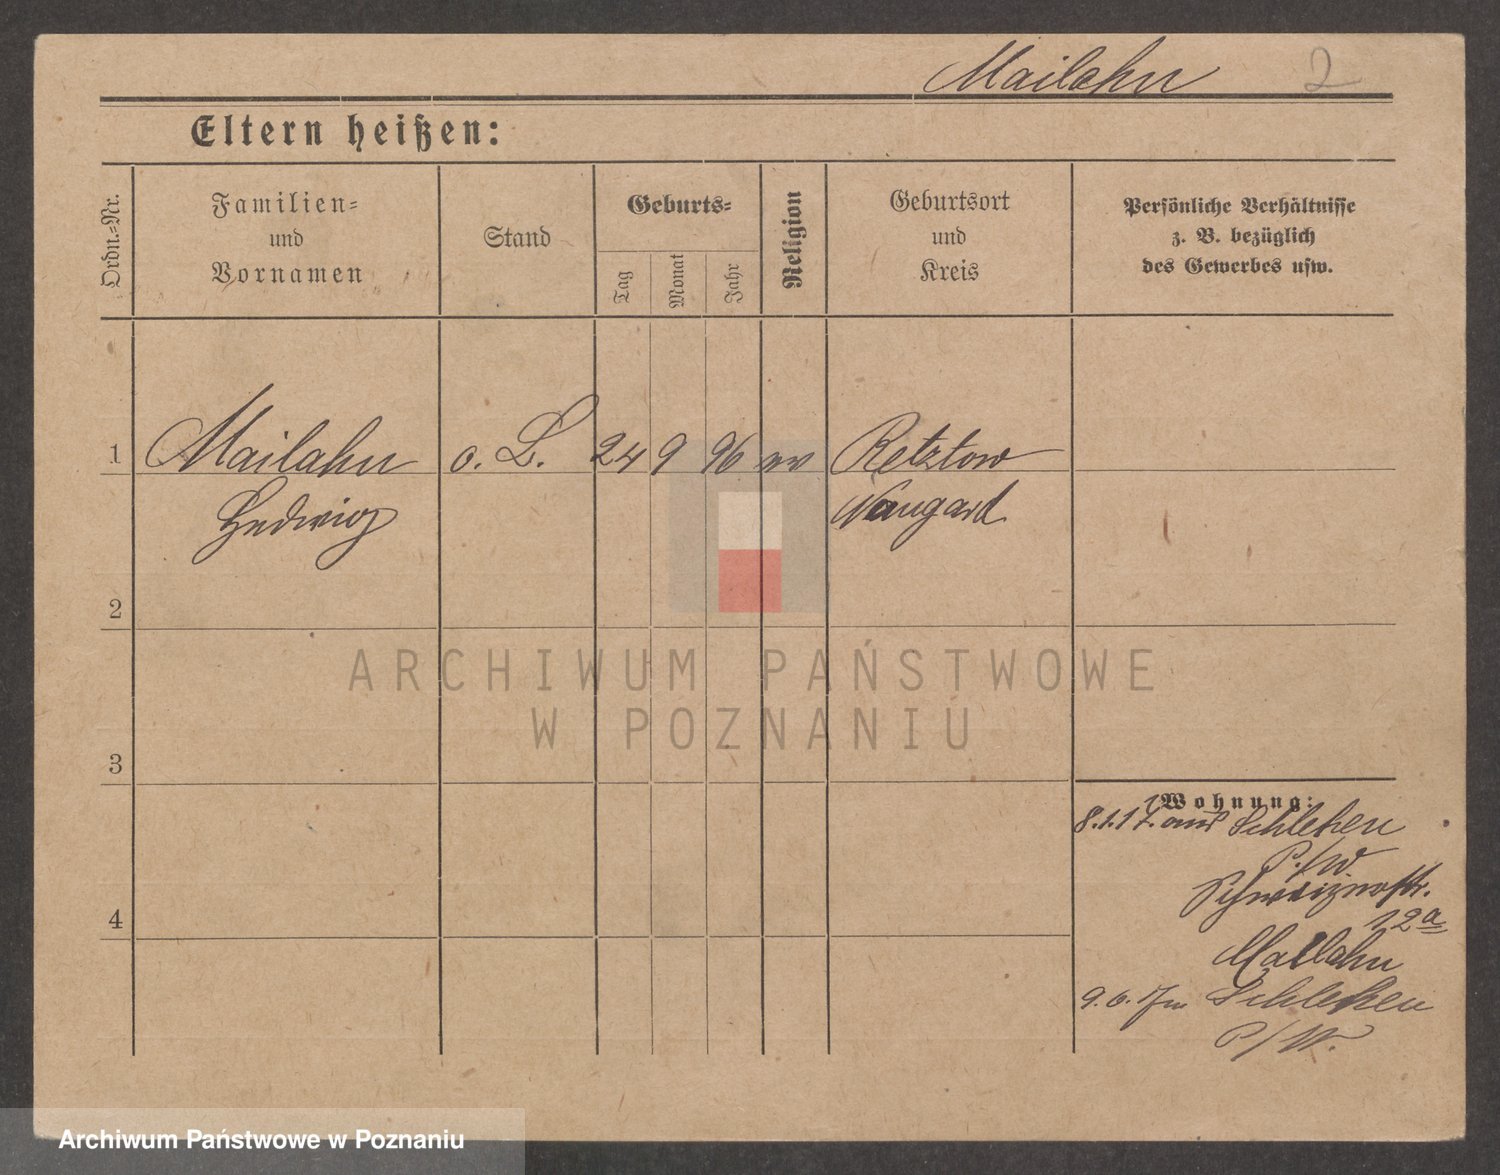 Mailahn 2
Eltern heißen:
Ordn.-Nr.
Familien-
und
Vornamen
Stand
Geburts-
Tag
Monat
Jahr
Religion
Geburtsort
und
Kreis
Persönliche Verhältnisse
z. B. bezüglich
des Gewerbes usw.
1 Mailahn o. B. 24 9 96 ev Retztow
Hedwig Naugard
2
3
4
Wohnung:
8.1.17. aus Schleħen
P./W.
12a
Mailahn
9.6.17 Schlehen
P/W.
ARCHIWUM PAŃSTWOWE
W POZNANIU
Archiwum Państwowe w Poznaniu